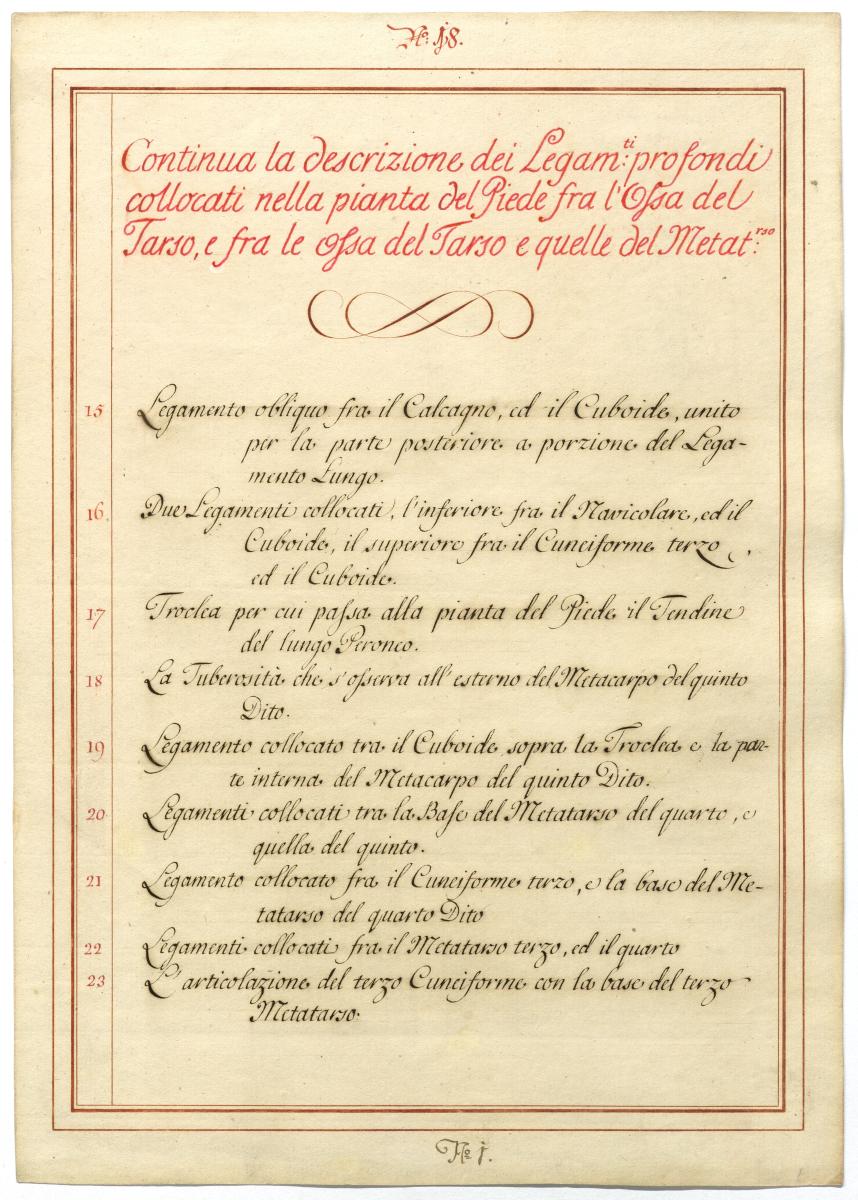 No. 18.
Continua la descrizione dei Legam:ti profondi
collocati nella pianta del Piede fra l'Ossa del
Tarso, e fra le Ossa del Tarso e quelle del Metat:rso
15 Legamento obliquo fra il Calcagno, ed il Cuboide, unito
per la parte posteriore a porzione del Lega-
mento Lungo.
16. Due Legamenti collocati, l'inferiore fra il Navicolare, ed il
Cuboide, il superiore fra il Cuneiforme terzo,
ed il Cuboide.
17 Troclea per cui passa alla pianta del Piede il Tendine
del lungo Peroneo.
18 La Tuberosità che s'osserva all'esterno del Metacarpo del quinto
Dito.
19 Legamento collocato tra il Cuboide sopra la Troclea e la par-
te interna del Metacarpo del quinto Dito.
20 Legamenti collocati tra la Base del Metatarso del quarto, e
quella del quinto.
21 Legamento collocato fra il Cuneiforme terzo, e la base del Me-
tatarso del quarto Dito
22 Legamenti collocati fra il Metatarso terzo, ed il quarto
23 L'articolazione del terzo Cuneiforme con la base del terzo
Metatarso.
No j.